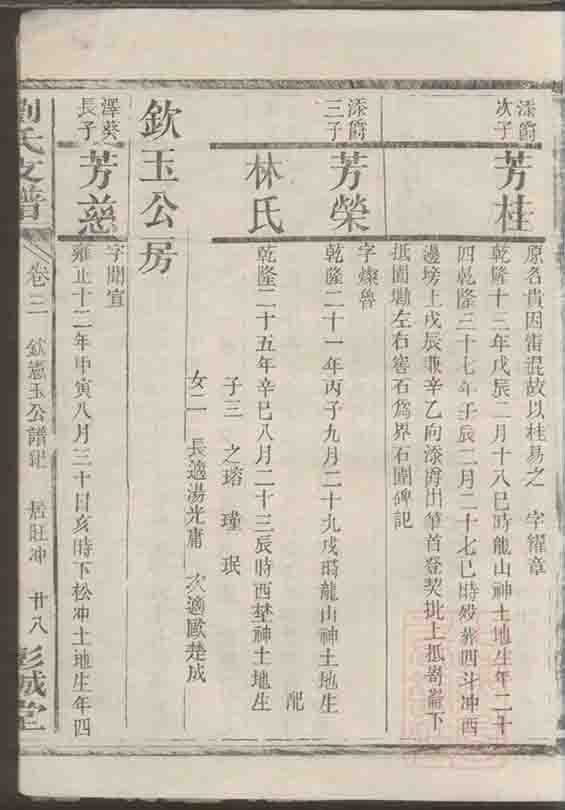 添爵
次子
芳桂
原名貴因雷混故以桂易之 字耀章
乾隆十三年戊辰二月十八巳時龍山神土地生年二十
四乾隆三十七年壬辰二月二十七巳時殁葬四斗冲西
邊塝上戊辰兼辛乙向添爵出筆首登契批上抵嵜崙下
抵園墈左右窖石為界石圍碑記
添爵
三子
芳榮
字燦魯
乾隆二十一年丙子九月二十九戌時龍山神土地生
配
林氏
乾隆二十五年辛巳八月二十三辰時西埜神土地生
子三 之瑢 瑾 珉
女二 長適湯光庸 次適歐楚成
欽玉公房
澤葵
長子
芳慈
字聞宣
雍正十二年甲寅八月二十日亥時下松冲土地生年四
劉氏支譜
卷三
欽憲玉公譜紀 居旺冲 廿八
彭城堂